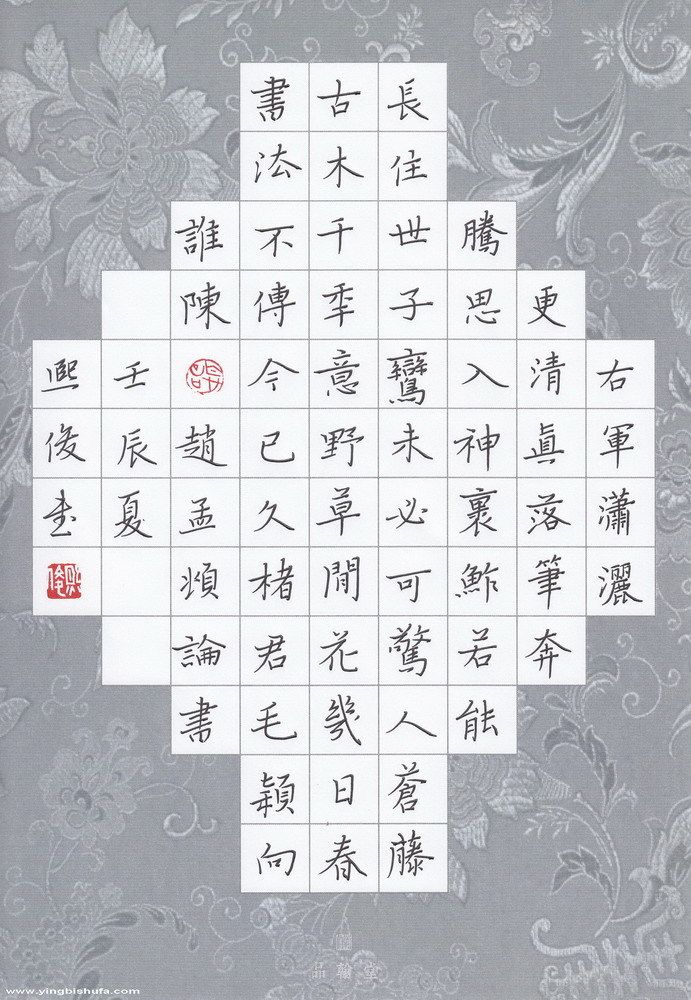 右軍瀟灑
更清眞落筆奔
騰思入神裏鮓若能
長住世子鸞未必可驚人蒼藤
古木千秊意野草閒花幾日春
書法不傳今已久楮君毛穎向
誰陳趙孟頫論書
壬辰夏
熙俊書
品翰堂
www.yingbishufa.com